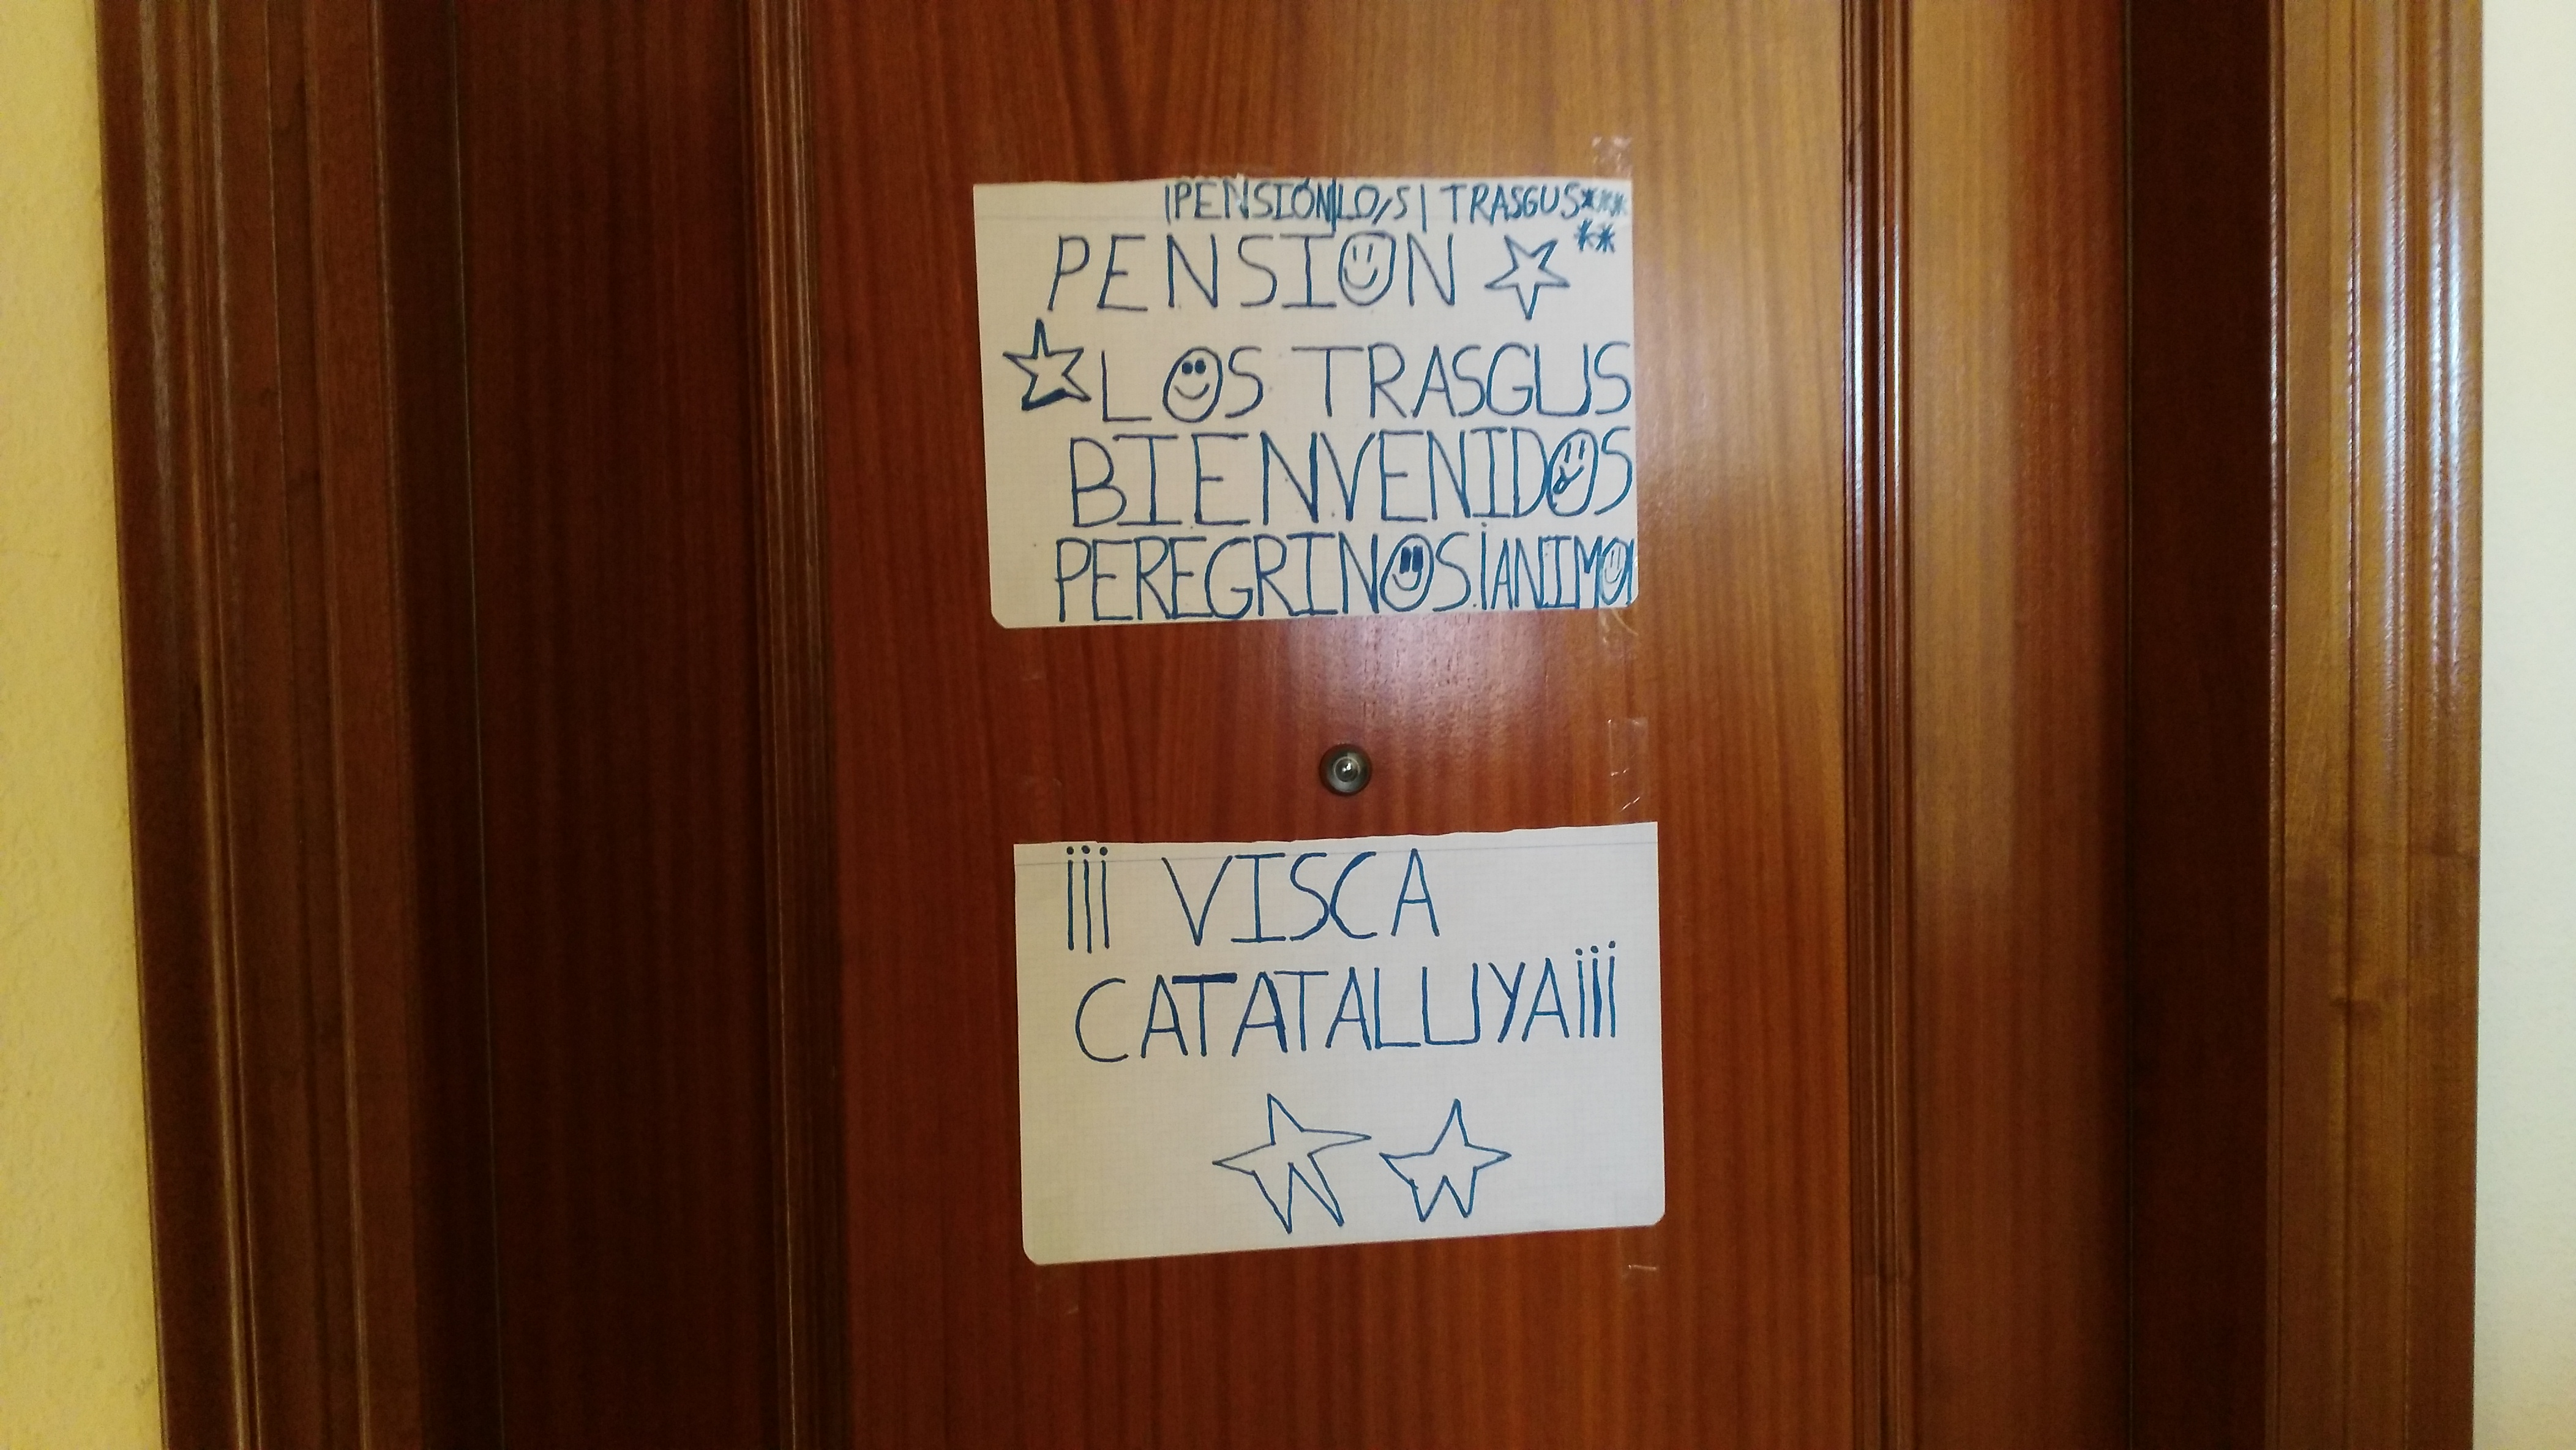 ¡PENSIÓN|LO,S| TRASGUS***
**
PENSION
LOS TRASGUS
BIENVENIDOS
PEREGRINOS ¡ANIMO!
¡¡¡ VISCA
CATATALUYA¡¡¡